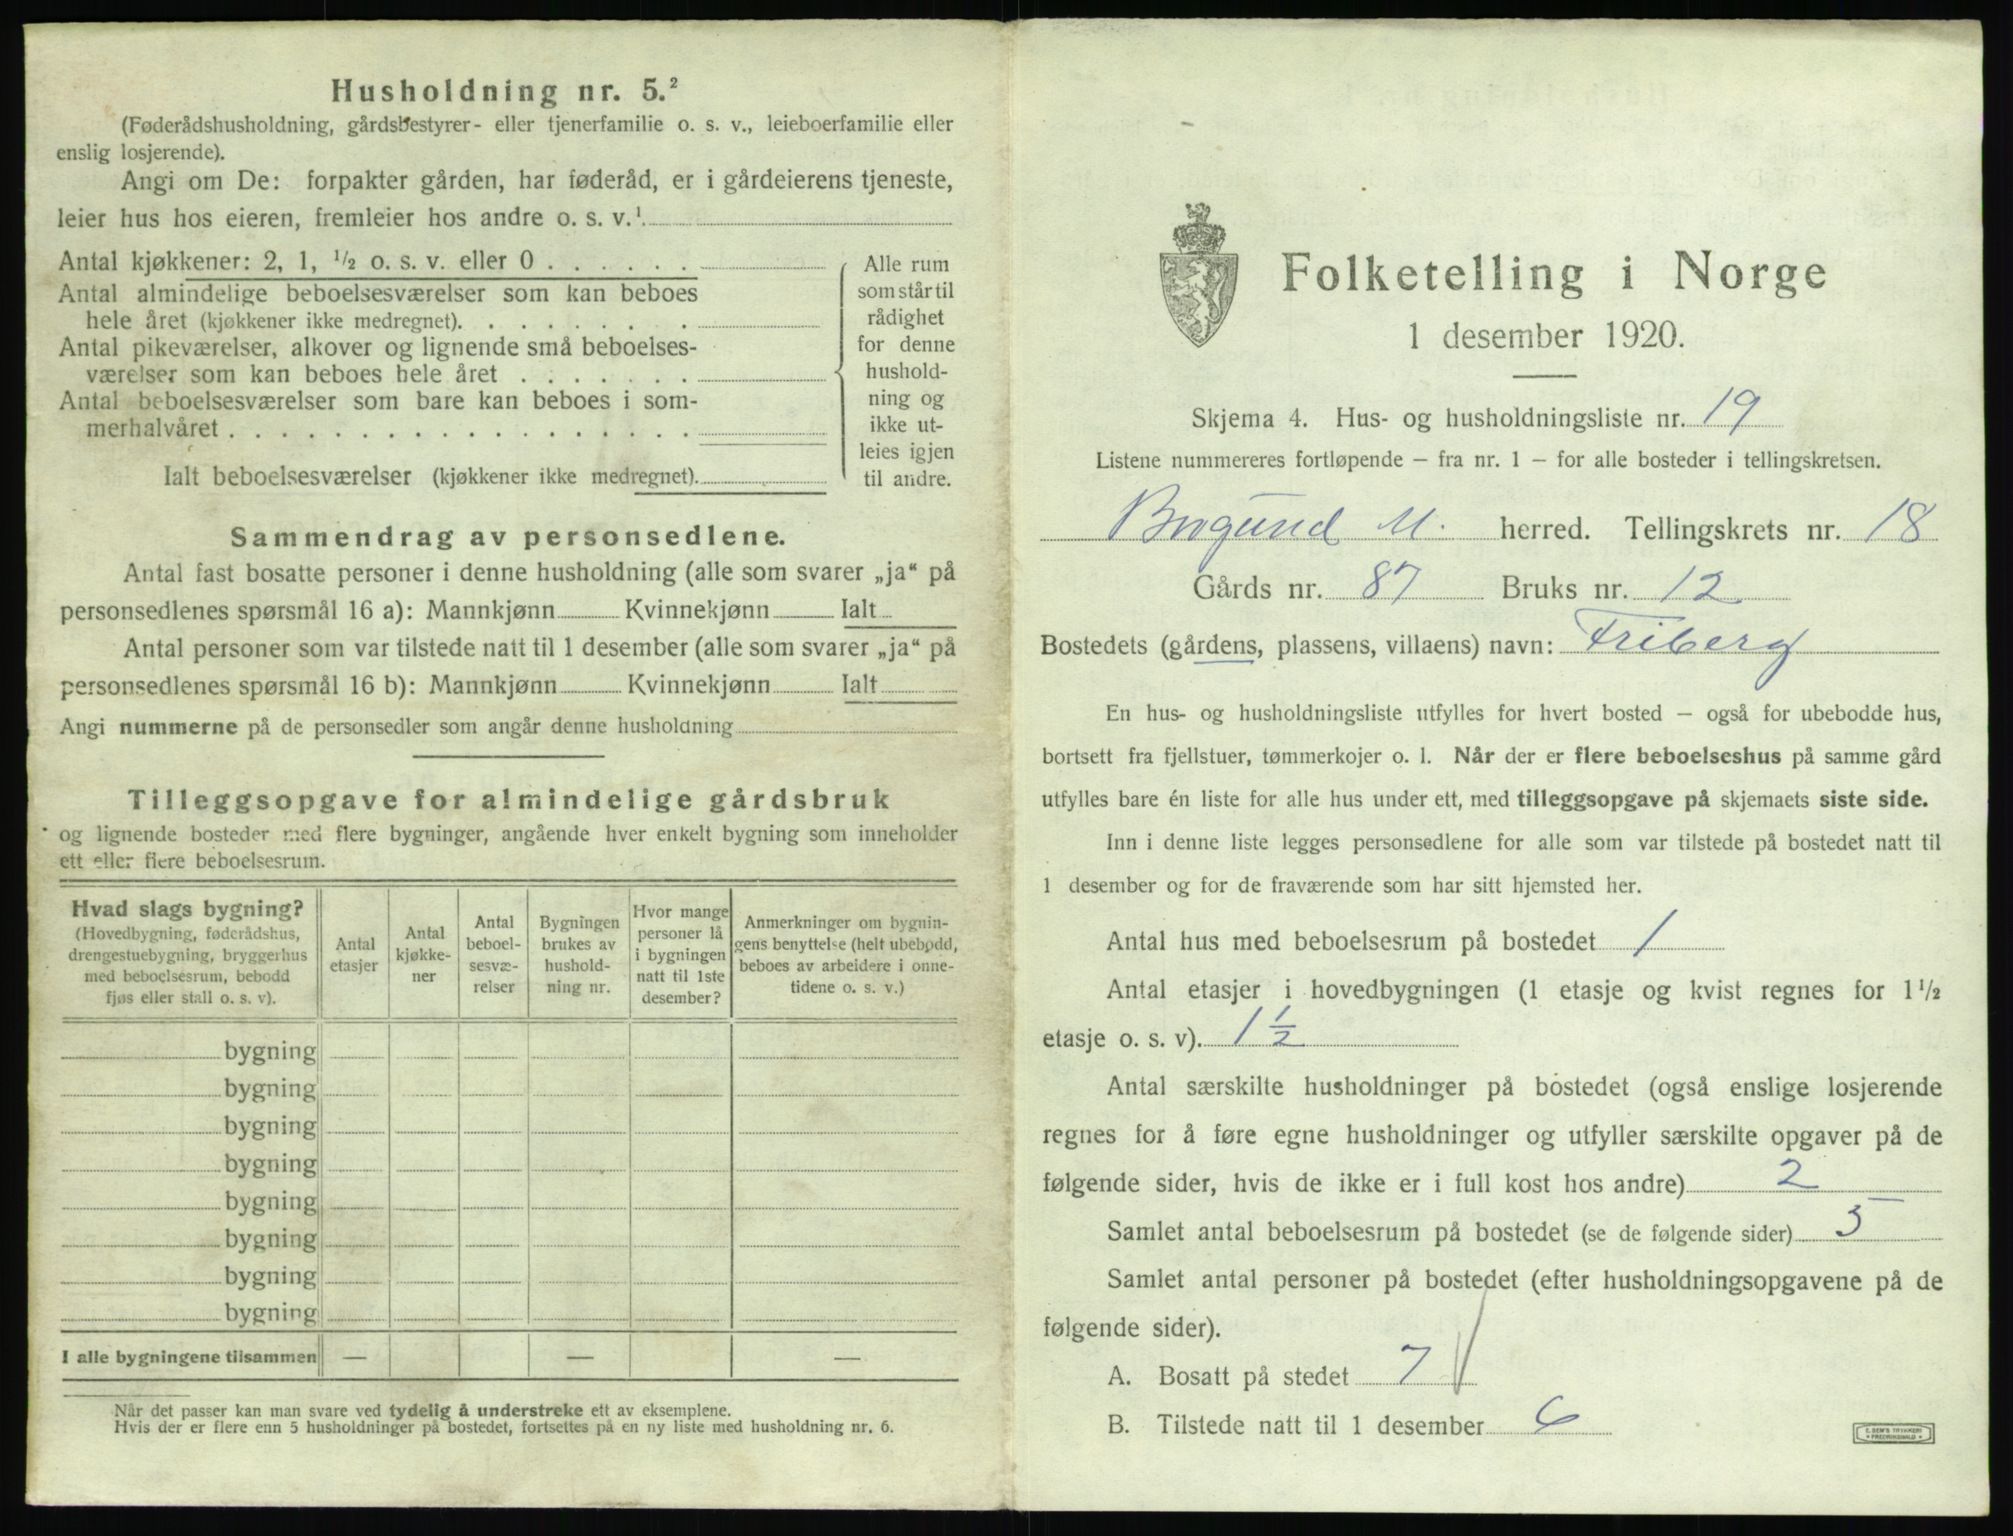 Husholdning nr. 5.²
(Føderådshusholdning, gårdsbestyrer- eller tjenerfamilie o. s. v., leieboerfamilie eller
enslig losjerende).
Angi om De: forpakter gården, har føderåd, er i gårdeierens tjeneste,
leier hus hos eieren, fremleier hos andre o. s. v.¹
Antal kjøkkener: 2, 1, ½ o. s. v. eller 0 . . . . . .
Antal almindelige beboelsesværelser som kan beboes
hele året (kjøkkener ikke medregnet). . . . . . . . .
Antal pikeværelser, alkover og lignende små beboelses-
værelser som kan beboes hele året . . . . . . .
Antal beboelsesværelser som bare kan beboes i som-
merhalvåret . . . . . . . . . . . . . . . . . .
Ialt beboelsesværelser (kjøkkener ikke medregnet).
Alle rum
som står til
rådighet
for denne
hushold-
ning og
ikke ut-
leies igjen
til andre.
Sammendrag av personsedlene.
Antal fast bosatte personer i denne husholdning (alle som svarer „ja“ på
personsedlenes spørsmål 16 a): Mannkjønn Kvinnekjønn Ialt
Antal personer som var tilstede natt til 1 desember (alle som svarer „ja“ på
personsedlenes spørsmål 16 b): Mannkjønn Kvinnekjønn Ialt
Angi nummerne på de personsedler som angår denne husholdning
Tilleggsopgave for almindelige gårdsbruk
og lignende bosteder med flere bygninger, angående hver enkelt bygning som inneholder
ett eller flere beboelsesrum.
Hvad slags bygning?
(Hovedbygning, føderådshus,
drengestuebygning, bryggerhus
med beboelsesrum, bebodd
fjøs eller stall o. s. v).
Antal
etasjer
Antal
kjøkke-
ner
Antal
beboel-
sesvæ-
relser
Bygningen
brukes av
hushold-
ning nr.
Hvor mange
personer lå
i bygningen
natt til 1ste
desember?
Anmerkninger om bygnin-
gens benyttelse (helt ubebodd,
beboes av arbeidere i onne-
tidene o. s. v.)
bygning
bygning
bygning
bygning
bygning
bygning
bygning
bygning
I alle bygningene tilsammen — — —
Når det passer kan man svare ved tydelig å understreke ett av eksemplene.
Hvis der er flere enn 5 husholdninger på bostedet, fortsettes på en ny liste med husholdning nr. 6.
Folketelling i Norge
1 desember 1920.
Skjema 4. Hus- og husholdningsliste nr. 19
Listene nummereres fortløpende – fra nr. 1 – for alle bosteder i tellingskretsen.
Borgund M. herred. Tellingskrets nr. 18
Gårds nr. 87 Bruks nr. 12
Bostedets (gårdens, plassens, villaens) navn: Friberg
En hus- og husholdningsliste utfylles for hvert bosted – også for ubebodde hus,
bortsett fra fjellstuer, tømmerkojer o. l. Når der er flere beboelseshus på samme gård
utfylles bare én liste for alle hus under ett, med tilleggsopgave på skjemaets siste side.
Inn i denne liste legges personsedlene for alle som var tilstede på bostedet natt til
1 desember og for de fraværende som har sitt hjemsted her.
Antal hus med beboelsesrum på bostedet 1
Antal etasjer i hovedbygningen (1 etasje og kvist regnes for 1½
etasje o. s. v). 1½
Antal særskilte husholdninger på bostedet (også enslige losjerende
regnes for å føre egne husholdninger og utfyller særskilte opgaver på de
følgende sider, hvis de ikke er i full kost hos andre) 2
Samlet antal beboelsesrum på bostedet (se de følgende sider) 5
Samlet antal personer på bostedet (efter husholdningsopgavene på de
følgende sider).
A. Bosatt på stedet 7
B. Tilstede natt til 1 desember 6
E. SEM'S TRYKKERI
FREDRIKSHALD